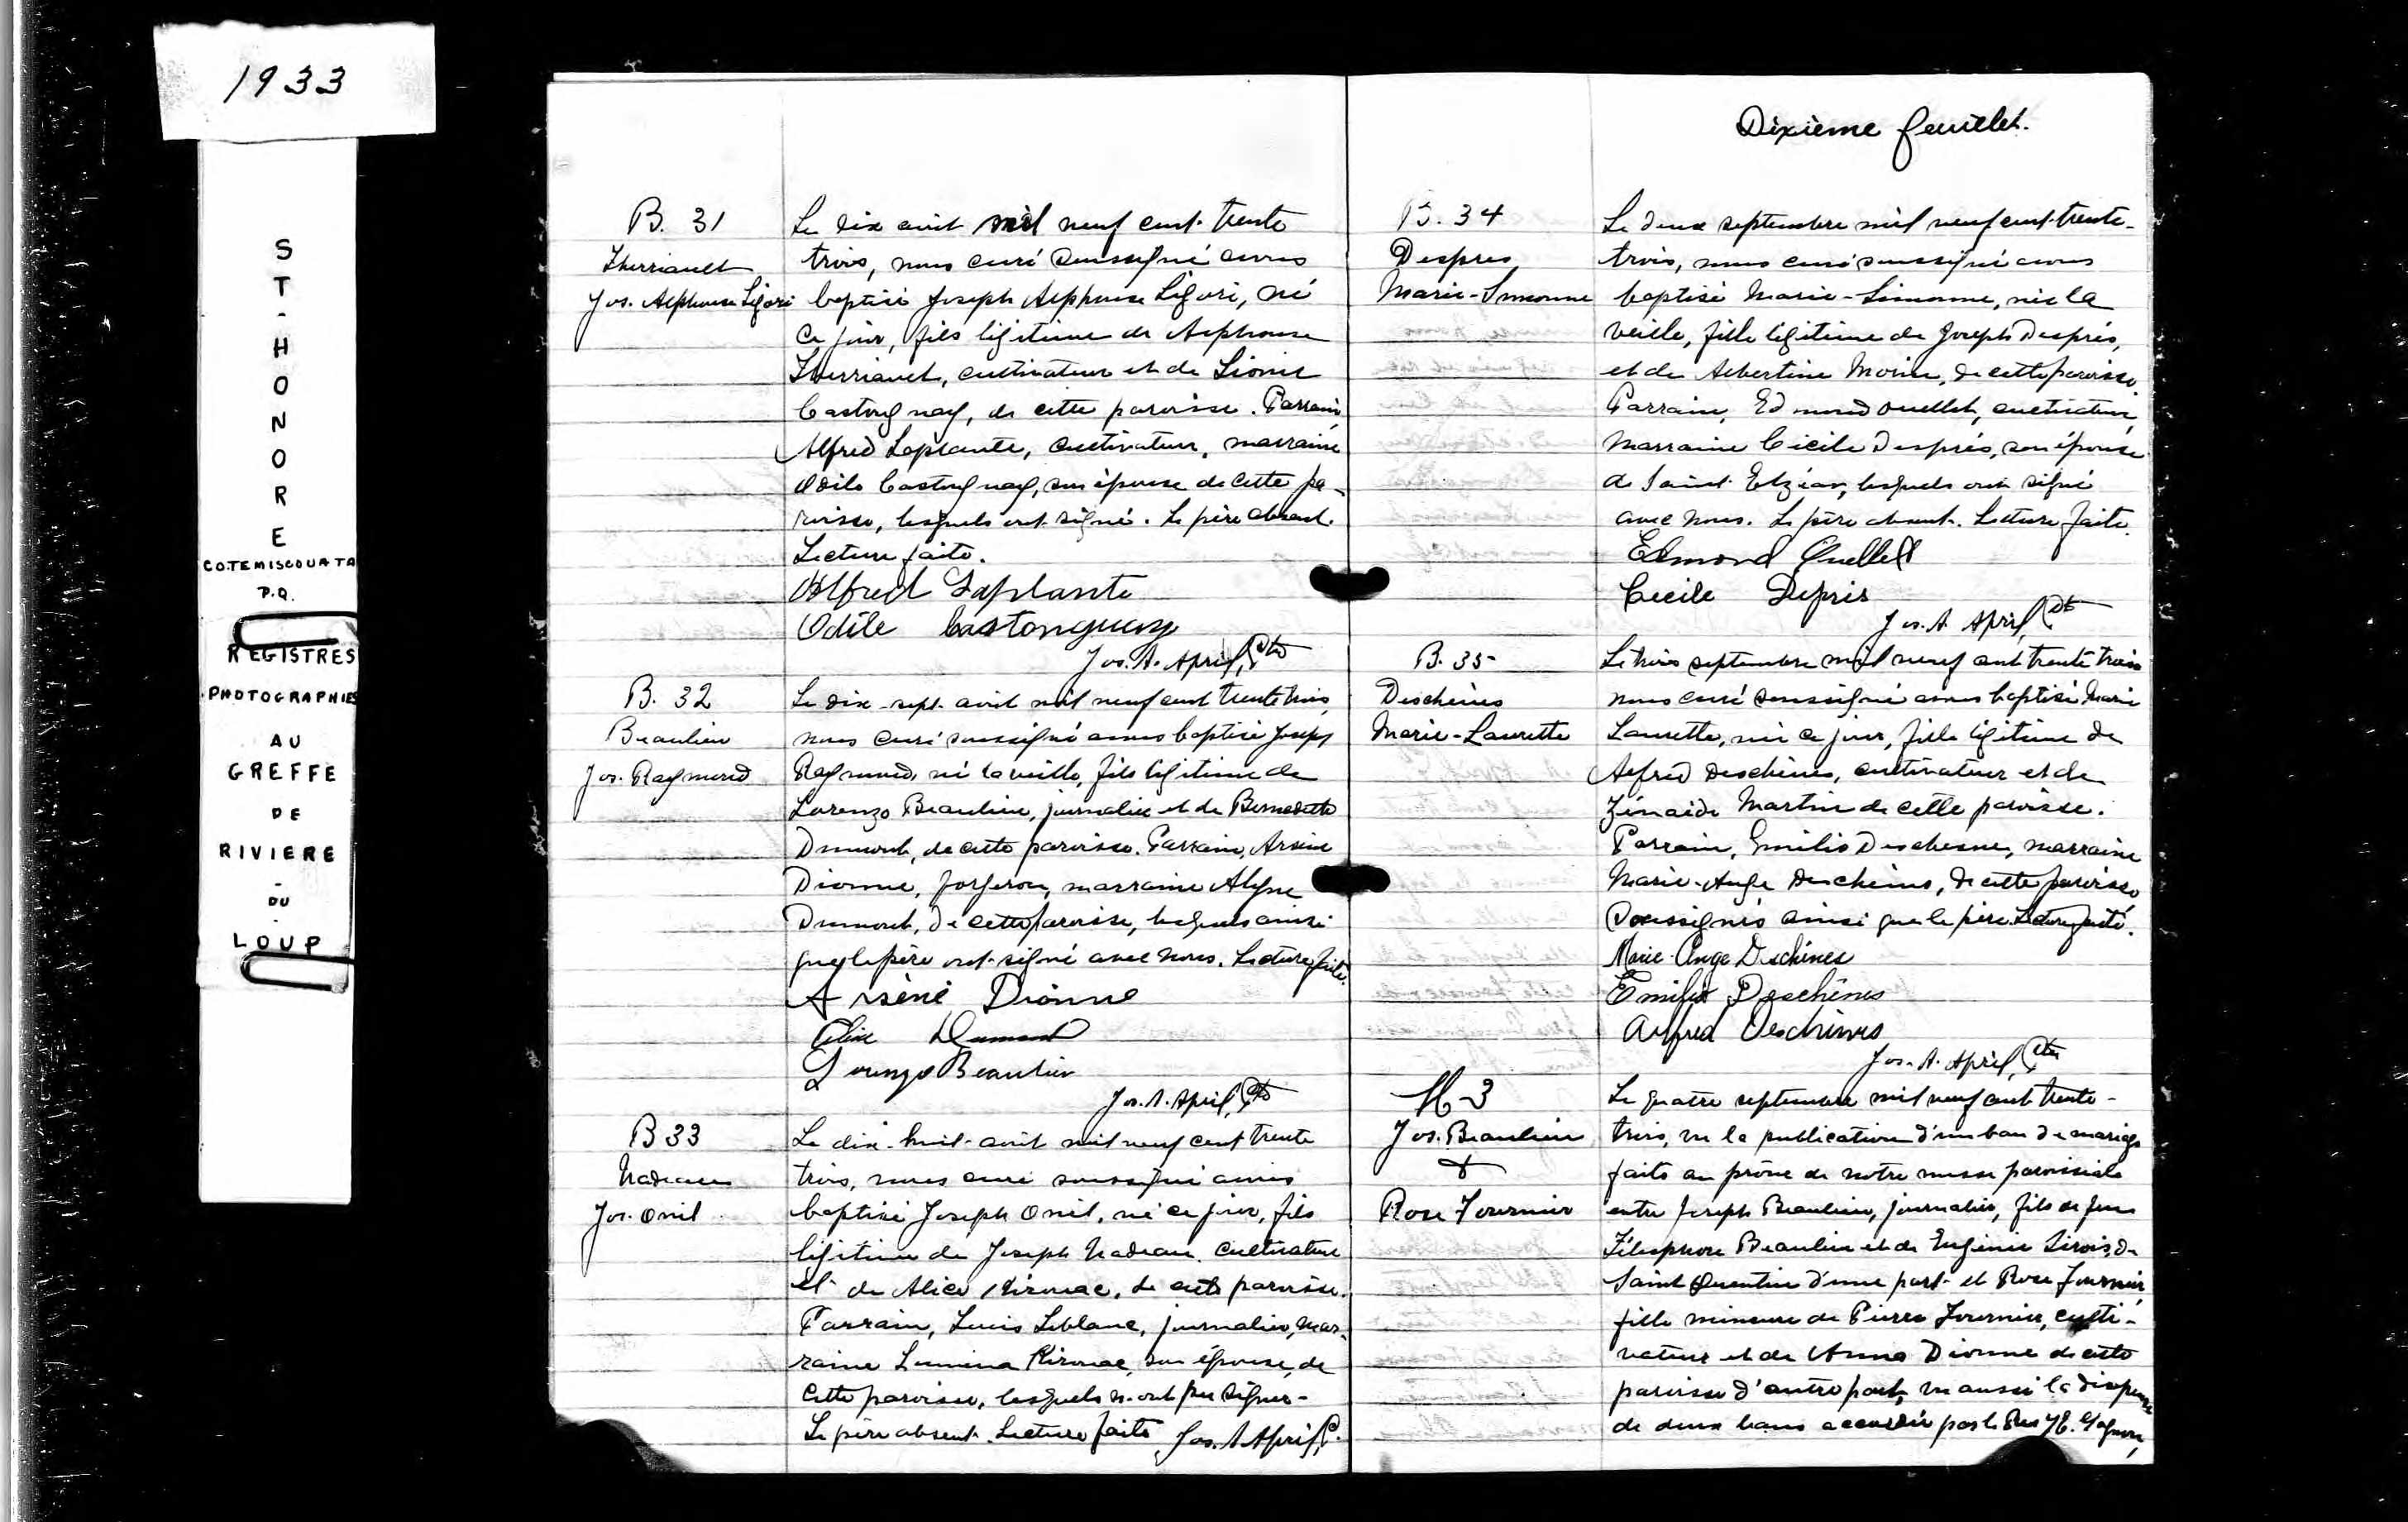 1933
ST-HONORE
CO. TEMISCOUATA
P.Q.
REGISTRES
PHOTOGRAPHIES
AU
GREFFE
DE
RIVIERE
-
DU
LOUP
B. 31
Therriault
Jos. Alphonse Ligori
Le dix août mil neuf cent trente
trois, nous curé soussigné avons
baptisé Joseph Alphonse Ligori, né
ce jour, fils légitime de Alphonse
Therriault, cultivateur et de Léonie
Castonguay, de cette paroisse. Parrain,
Alfred Laplante, cultivateur, marraine
Odile Castonguay, son épouse de cette pa-
roisse, lesquels ont signé. Le père absent.
Lecture faite.
Alfred Laplante
Odile Castonguay
Jos. A. April, Ptre
B. 32
Beaulieu
Jos. Raymond
Le dix-sept août mil neuf cent trente trois,
nous curé soussigné avons baptisé Joseph
Raymond, né la veille, fils légitime de
Lorenzo Beaulieu, journalier et de Bernadette
Dumont, de cette paroisse. Parrain, Arsène
Dionne, forgeron, marraine Alyne
Dumont, de cette paroisse, lesquels ainsi
que le père ont signé avec nous. Lecture faite.
Arsène Dionne
Dumont
Lorenzo Beaulieu
Jos. A. April, Ptre
B 33
Nadeau
Jos. Onil
Le dix-huit août mil neuf cent trente
trois, nous curé soussigné avons
baptisé Joseph Onil, né ce jour, fils
légitime de Joseph Nadeau cultivateur
et de Alice Kirouac, de cette paroisse.
Parrain, Louis Leblanc, journalier, mar-
raine Lumina Kirouac, son épouse, de
cette paroisse, lesquels n'ont pu signer-
Le père absent. Lecture faite Jos. A April, P.
Dixième feuillet.
B. 34
Despres
Marie-Simonne
Le deux septembre mil neuf cent trente-
trois, nous curé soussigné avons
baptisé Marie-Simonne, née la
veille, fille légitime de Joseph Després,
et de Albertine Morin, de cette paroisse
Parrain, Edmond Ouellet, cultivateur,
marraine Cécile Després, son épouse
de Saint Elzéar, lesquels ont signé
avec nous. Le père absent. Lecture faite.
Edmond Ouellet
Cecile Depris
Jos. A. April, Ptre
B. 35
Deschênes
Marie-Laurette
Le trois septembre mil neuf cent trente trois
nous curé soussigné avons baptisé Marie
Laurette, née ce jour, fille légitime de
Alfred Deschênes, cultivateur et de
Zénaïde Martin de cette paroisse.
Parrain, Emilio Deschesnes, marraine
Marie-Ange Deschênes, de cette paroisse,
soussignés ainsi que le père. Lecture faite.
Marie-Ange Deschênes
Emilio Deschênes
Alfred Deschênes
Jos. A. April, Ptre
M-3
Jos. Beaulieu
&
Rose Fournier
Le quatre septembre mil neuf cent trente-
trois, vu la publication d'un ban de mariage
faite au prône de notre messe paroissiale
entre Joseph Beaulieu, journalier, fils de feu
Télesphore Beaulieu et de Eugénie Sirois, de
Saint Quentin d'une part- et Rose Fournier,
fille mineure de Pierre Fournier, culti-
vateur et de Anna Dionne de cette
paroisse d'autre part, vu aussi la dispense
de deux bans accordée par le Gagnon,